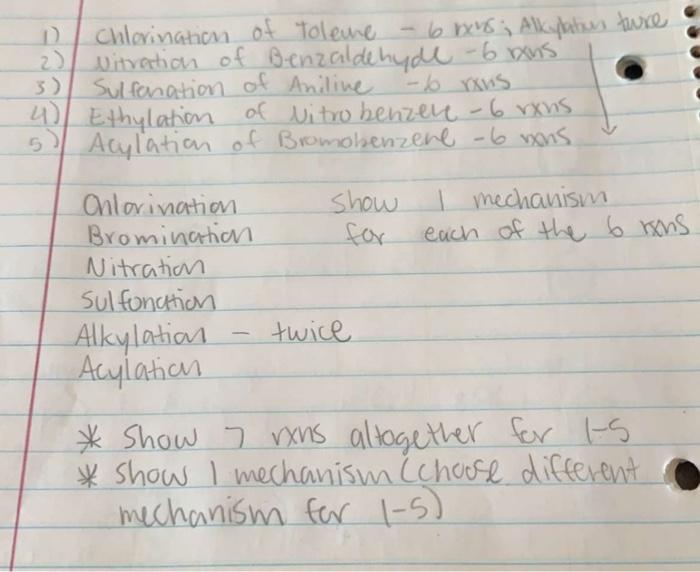 1) Chlorination of Tolene - 6 rxns; Alkylation twice
2) Nitration of Benzaldehyde - 6 rxns
3) Sulfonation of Aniline - 6 rxns
4) Ethylation of Nitrobenzene - 6 rxns
5) Acylation of Bromobenzene - 6 rxns
Chlorination show 1 mechanism
Bromination for each of the 6 rxns
Nitration
Sulfonation
Alkylation - twice
Acylation
* Show 7 rxns altogether for 1-5
* show 1 mechanism (choose different
mechanism for 1-5)